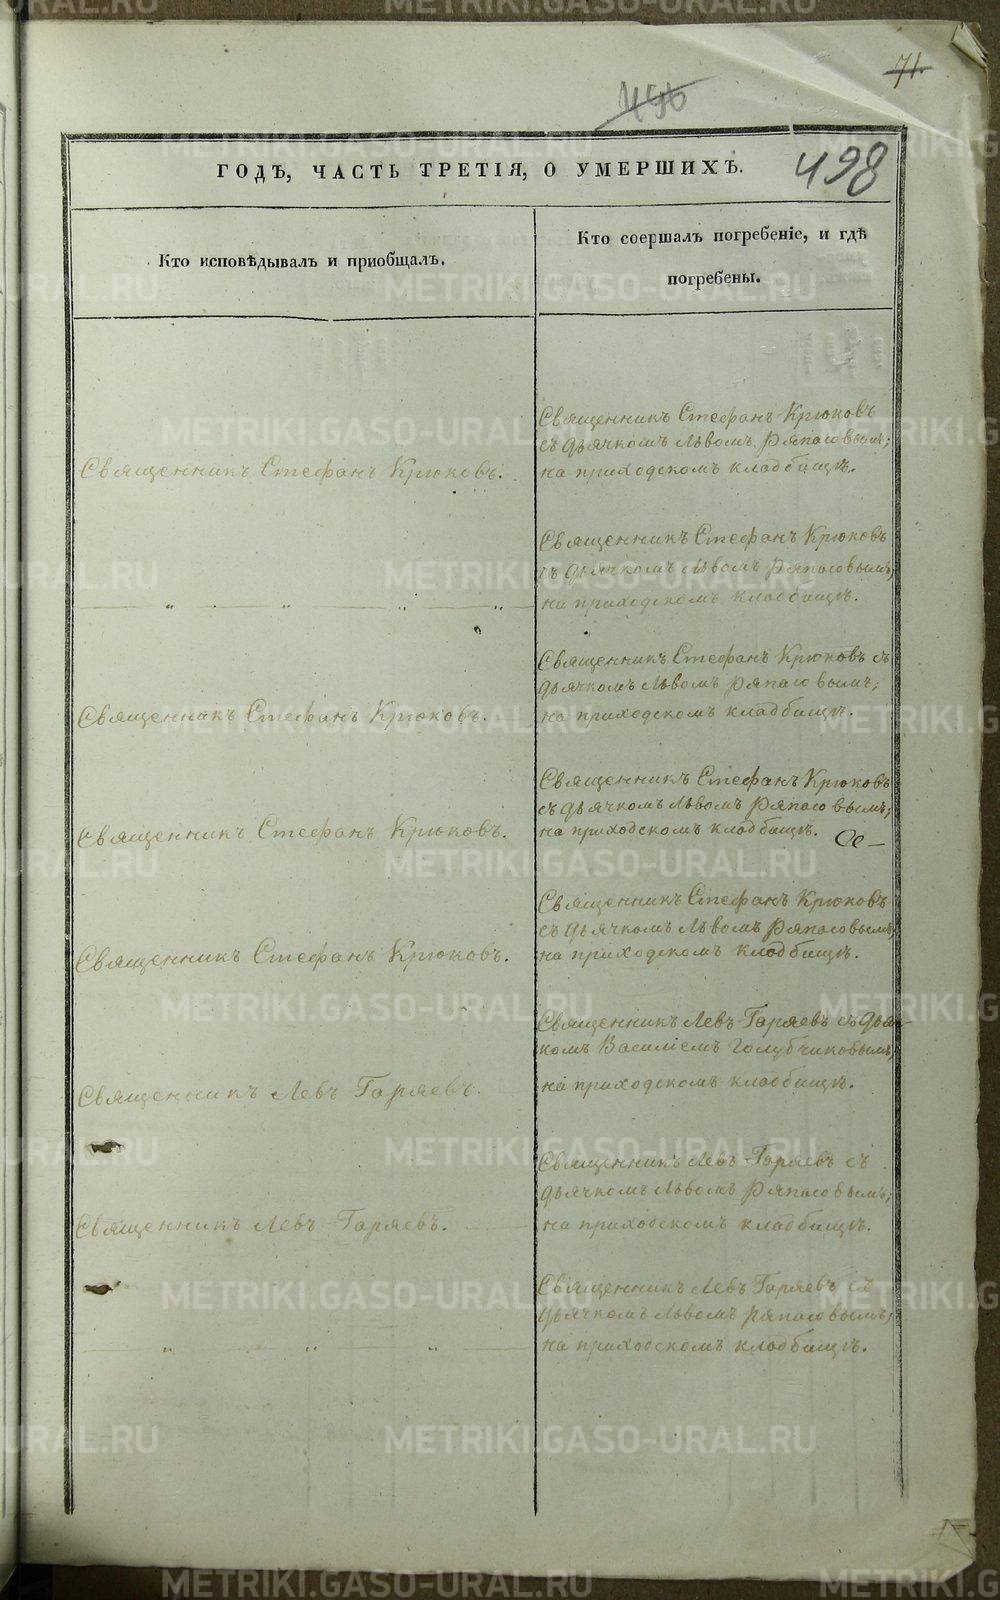 71.
496
498
ГОДѢ, ЧАСТЬ ТРЕТІЯ, О УМЕРШИХЪ.
Кто исповѣдывалъ и приобщалъ.
Кто соершалъ погребеніе, и гдѣ
погребены.
Священникъ Стефанъ Крюковъ.
Священникъ Стефанъ Крюковъ
съ дьячкомъ Львомъ Ряпасовымъ;
на приходскомъ кладбищѣ.
— „ — „ — „ — „ —
Священникъ Стефанъ Крюковъ
съ дьячкомъ Львомъ Ряпасовымъ;
на приходскомъ кладбищѣ.
Священникъ Стефанъ Крюковъ.
Священникъ Стефанъ Крюковъ съ
дьячкомъ Львомъ Ряпасовымъ;
на приходскомъ кладбищѣ.
Священникъ Стефанъ Крюковъ.
Священникъ Стефанъ Крюковъ
съ дьячкомъ Львомъ Ряпасовымъ;
на приходскомъ кладбищѣ.
Священникъ Стефанъ Крюковъ.
Священникъ Стефанъ Крюковъ
съ дьячкомъ Львомъ Ряпасовымъ,
на приходскомъ кладбищѣ.
Священникъ Левъ Гаряевъ
Священникъ Левъ Гаряевъ съ дьяч-
комъ Василіемъ Голубчиковымъ,
на приходскомъ кладбищѣ.
Священникъ Левъ Гаряевъ.
Священникъ Левъ Гаряевъ съ
дьячкомъ Львомъ Ряпасовымъ;
на приходскомъ кладбищѣ.
— „ — „ — „ —
Священникъ Левъ Гаряевъ съ
дьячкомъ Львомъ Ряпасовымъ;
на приходскомъ кладбищѣ.
METRIKI.GASO-URAL.RU